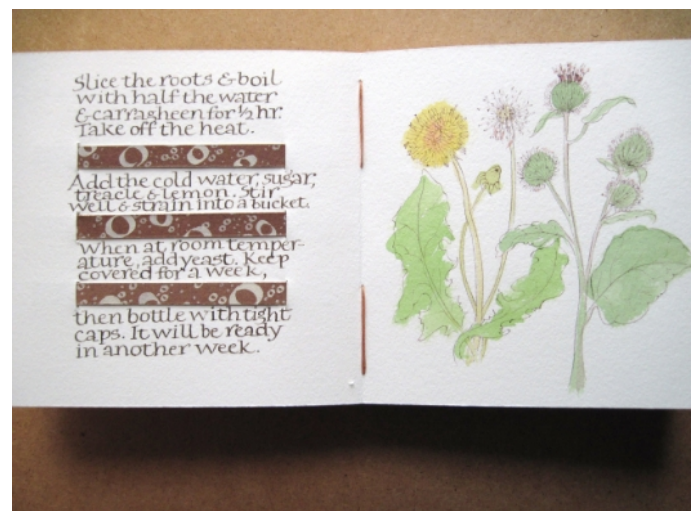 Slice the roots & boil
with half the water
& carragheen for ½ hr.
Take off the heat.
Add the cold water, sugar,
treacle & lemon. Stir
well & strain into a bucket.
When at room temper-
ature, add yeast. Keep
covered for a week,
then bottle with tight
caps. It will be ready
in another week.